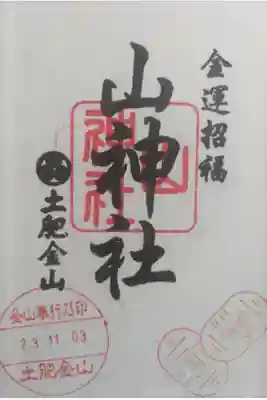 金運招福
山神社
土肥金山
山神社
金山奉行乃印
23.11.03
土肥金山